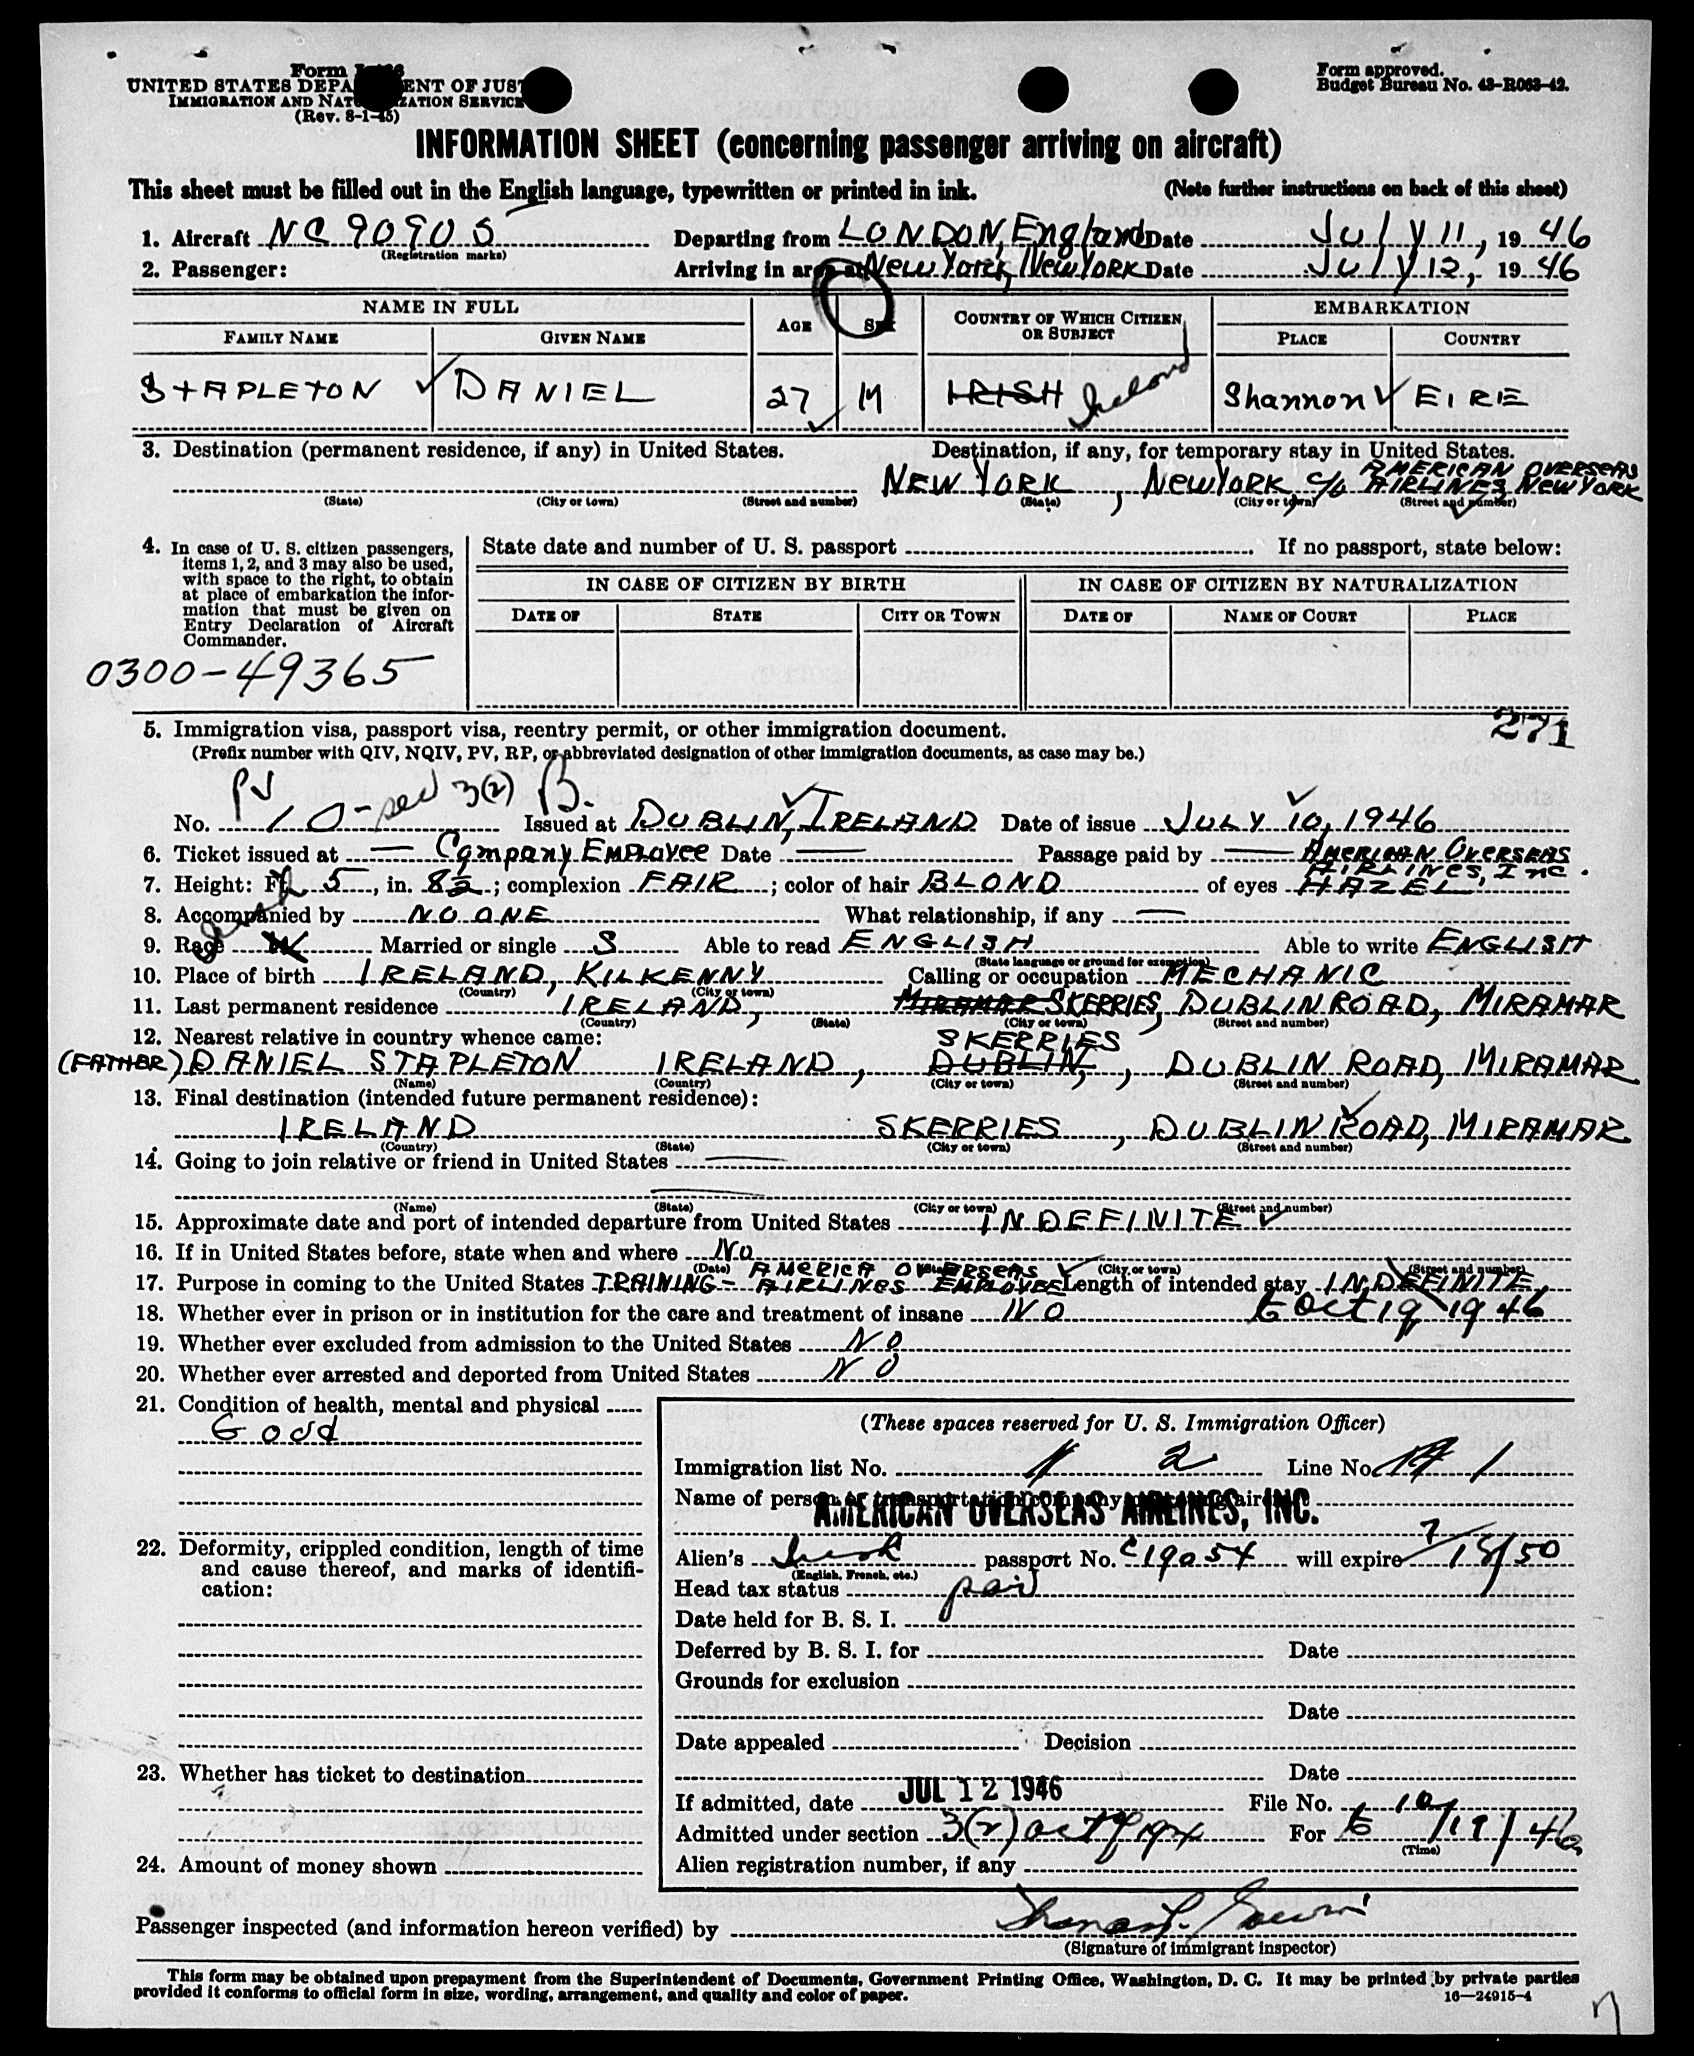 Form
UNITED STATES DEPA ENT OF JUST
IMMIGRATION AND NATU IZATION SERVICE
(Rev. 8-1-45)
Form approved.
Budget Bureau No. 43-R063-42.
INFORMATION SHEET (concerning passenger arriving on aircraft)
This sheet must be filled out in the English language, typewritten or printed in ink. (Note further instructions on back of this sheet)
1. Aircraft NC 90905 Departing from LONDON, England Date July 11, 1946
(Registration marks)
2. Passenger: Arriving in area at New York, New York Date July 12, 1946
NAME IN FULL AGE SEX COUNTRY OF WHICH CITIZEN OR SUBJECT EMBARKATION
FAMILY NAME GIVEN NAME PLACE COUNTRY
STAPLETON DANIEL 27 M IRISH Ireland Shannon EIRE
3. Destination (permanent residence, if any) in United States. Destination, if any, for temporary stay in United States.
NEW YORK, NEW YORK c/o AMERICAN OVERSEAS AIRLINES, NEW YORK
(State) (City or town) (Street and number) (State) (City or town) (Street and number)
4. In case of U. S. citizen passengers, items 1, 2, and 3 may also be used, with space to the right, to obtain at place of embarkation the information that must be given on Entry Declaration of Aircraft Commander.
State date and number of U. S. passport If no passport, state below:
IN CASE OF CITIZEN BY BIRTH IN CASE OF CITIZEN BY NATURALIZATION
DATE OF STATE CITY OR TOWN DATE OF NAME OF COURT PLACE
0300-49365
5. Immigration visa, passport visa, reentry permit, or other immigration document. 271
(Prefix number with QIV, NQIV, PV, RP, or abbreviated designation of other immigration documents, as case may be.)
PV
No. 10 - sec 3(2) B. Issued at DUBLIN, IRELAND Date of issue JULY 10, 1946
6. Ticket issued at — Company Employee Date — Passage paid by — AMERICAN OVERSEAS AIRLINES, Inc.
7. Height: Ft. 5, in. 8½; complexion FAIR; color of hair BLOND of eyes HAZEL
8. Accompanied by NO ONE What relationship, if any —
9. Race W Irish Married or single S Able to read ENGLISH Able to write ENGLISH
(State language or ground for exemption)
10. Place of birth IRELAND, KILKENNY Calling or occupation MECHANIC
(Country) (City or town)
11. Last permanent residence IRELAND, MIRAMAR SKERRIES, DUBLIN ROAD, MIRAMAR
(Country) (State) (City or town) (Street and number)
12. Nearest relative in country whence came: SKERRIES
(FATHER) DANIEL STAPLETON IRELAND, DUBLIN, , DUBLIN ROAD, MIRAMAR
(Name) (Country) (City or town) (Street and number)
13. Final destination (intended future permanent residence):
IRELAND SKERRIES, DUBLIN ROAD, MIRAMAR
(Country) (State) (City or town) (Street and number)
14. Going to join relative or friend in United States —
—
(Name) (State) (City or town) (Street and number)
15. Approximate date and port of intended departure from United States INDEFINITE
16. If in United States before, state when and where No
(Date) (State) (City or town) (Street and number)
17. Purpose in coming to the United States TRAINING - AMERICA OVERSEAS AIRLINES EMPLOYEE Length of intended stay INDEFINITE
18. Whether ever in prison or in institution for the care and treatment of insane NO to Oct 19, 1946
19. Whether ever excluded from admission to the United States NO
20. Whether ever arrested and deported from United States NO
21. Condition of health, mental and physical
Good
22. Deformity, crippled condition, length of time and cause thereof, and marks of identification:
23. Whether has ticket to destination
24. Amount of money shown
(These spaces reserved for U. S. Immigration Officer)
Immigration list No. 2 Line No. 1
Name of person or transportation company operating aircraft
AMERICAN OVERSEAS AIRLINES, INC.
Alien's Irish passport No. C19054 will expire 7/13/50
(English, French, etc.)
Head tax status paid
Date held for B. S. I.
Deferred by B. S. I. for Date
Grounds for exclusion
Date
Date appealed Decision
Date
If admitted, date JUL 12 1946 File No.
Admitted under section 3(2) act of 1924 For to 10/19/46
(Time)
Alien registration number, if any
Passenger inspected (and information hereon verified) by
(Signature of immigrant inspector)
This form may be obtained upon prepayment from the Superintendent of Documents, Government Printing Office, Washington, D. C. It may be printed by private parties
provided it conforms to official form in size, wording, arrangement, and quality and color of paper.
16—24915-4